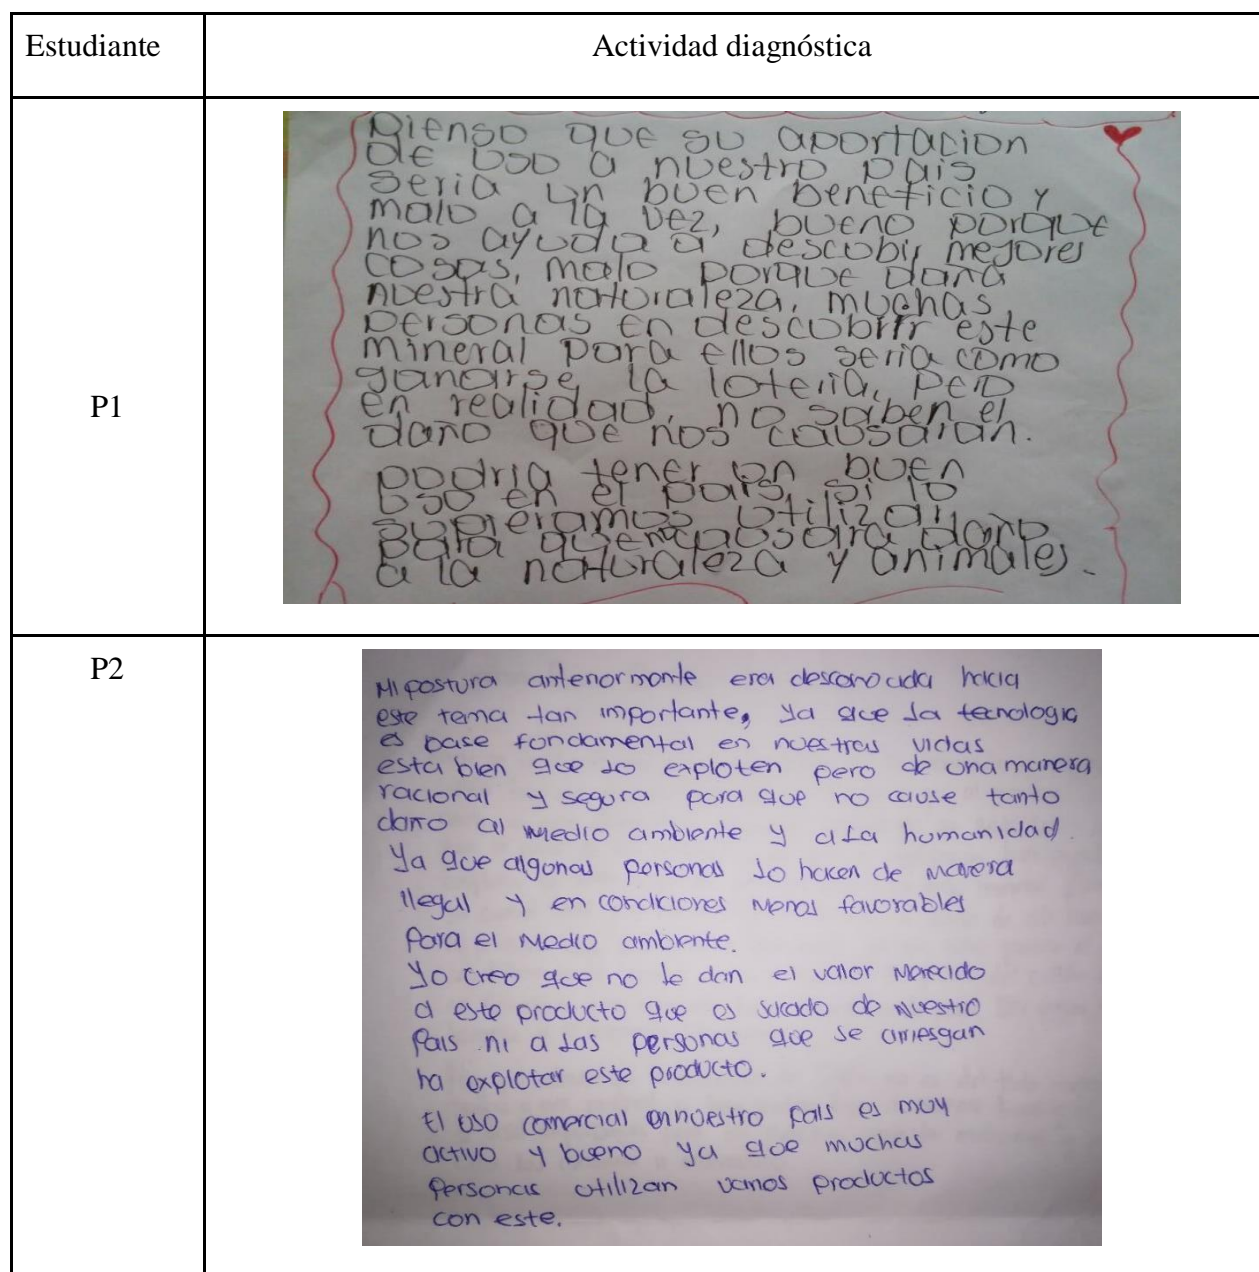 Estudiante
Actividad diagnóstica
P1
Pienso que su aportacion
de uso a nuestro pais
seria un buen beneficio y
malo a la vez, bueno porque
nos ayuda a descobir mejores
cosas, malo porque daña
nuestra naturaleza, muchas
personas en descubrir este
mineral para ellos seria como
ganarse la loteria, pero
en realidad, no saben el
daño que nos causaran.
podria tener un buen
uso en el pais, si lo
supieramos utilizar
para que causara daño
a la naturaleza y animales.
P2
Mi postura anteriormente era desconocida hacia
este tema tan importante, ya que la tecnologia
es base fundamental en nuestras vidas
esta bien que lo exploten pero de una manera
racional y segura para que no cause tanto
daño al medio ambiente y a la humanidad.
Ya que algunas personas lo hacen de manera
ilegal y en condiciones menos favorables
para el medio ambiente.
Yo creo que no le dan el valor merecido
a este producto que es sacado de nuestro
pais ni a las personas que se arriesgan
ha explotar este producto.
El uso comercial en nuestro pais es muy
activo y bueno ya que muchas
personas utilizan varios productos
con este.